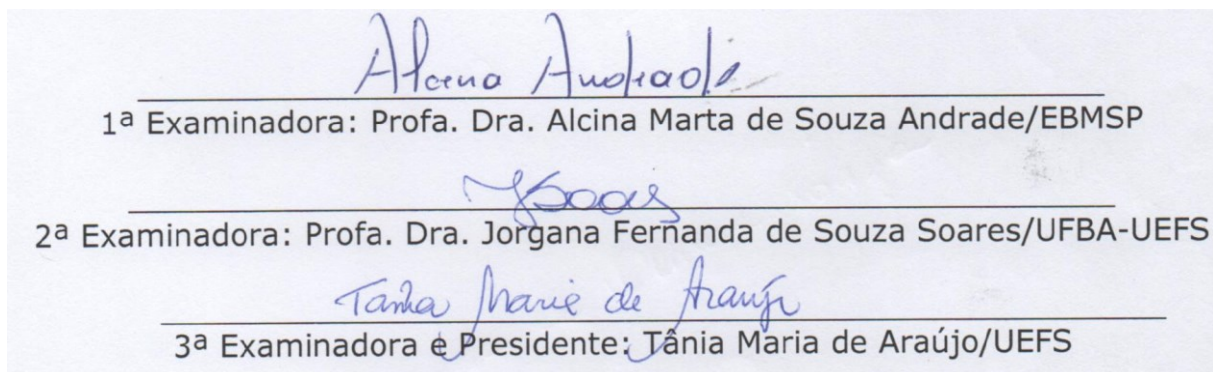 Alcina Andrade
1ª Examinadora: Profa. Dra. Alcina Marta de Souza Andrade/EBMSP
2ª Examinadora: Profa. Dra. Jorgana Fernanda de Souza Soares/UFBA-UEFS
Tania Maria de Araújo
3ª Examinadora e Presidente: Tânia Maria de Araújo/UEFS